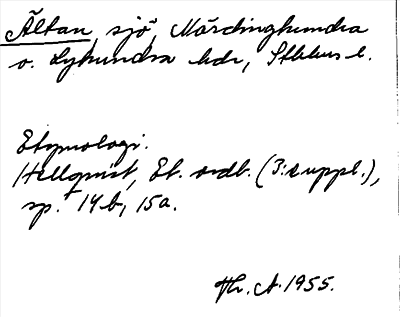 Ältan, sjö, Närdinghundra
o. Lyhundra hdr, Sthlms l.
Etymologi.
Hellquist, Et. ordb. (3: suppl.),
sp. 14b, 15a.
Th. A. 1955.